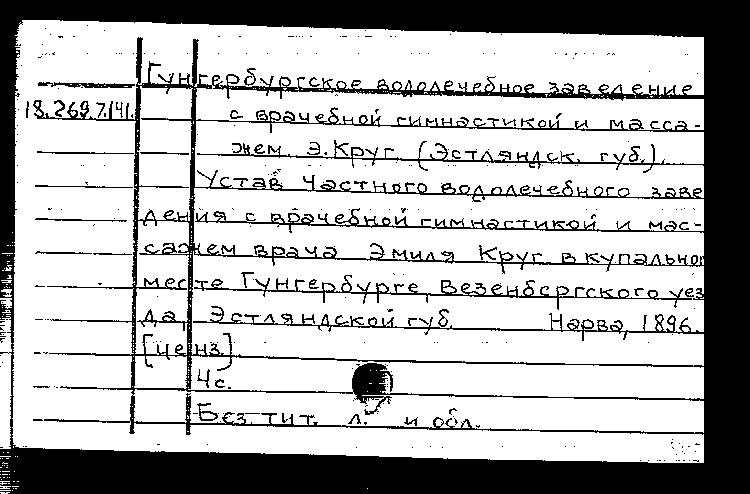 Гунгербургское водолечебное заведение
18.269.7.141. с врачебной гимнастикой и масса-
жем Э. Круг (Эстляндск. губ.).
Устав частного водолечебного заве
дения с врачебной гимнастикой и мас-
сажем врача Эмиля Круг в купально
месте Гунгербурге, Везенбергского уез
да, Эстляндской губ. Нарва, 1896.
[ценз.]
4с.
Без тит. л. и обл.